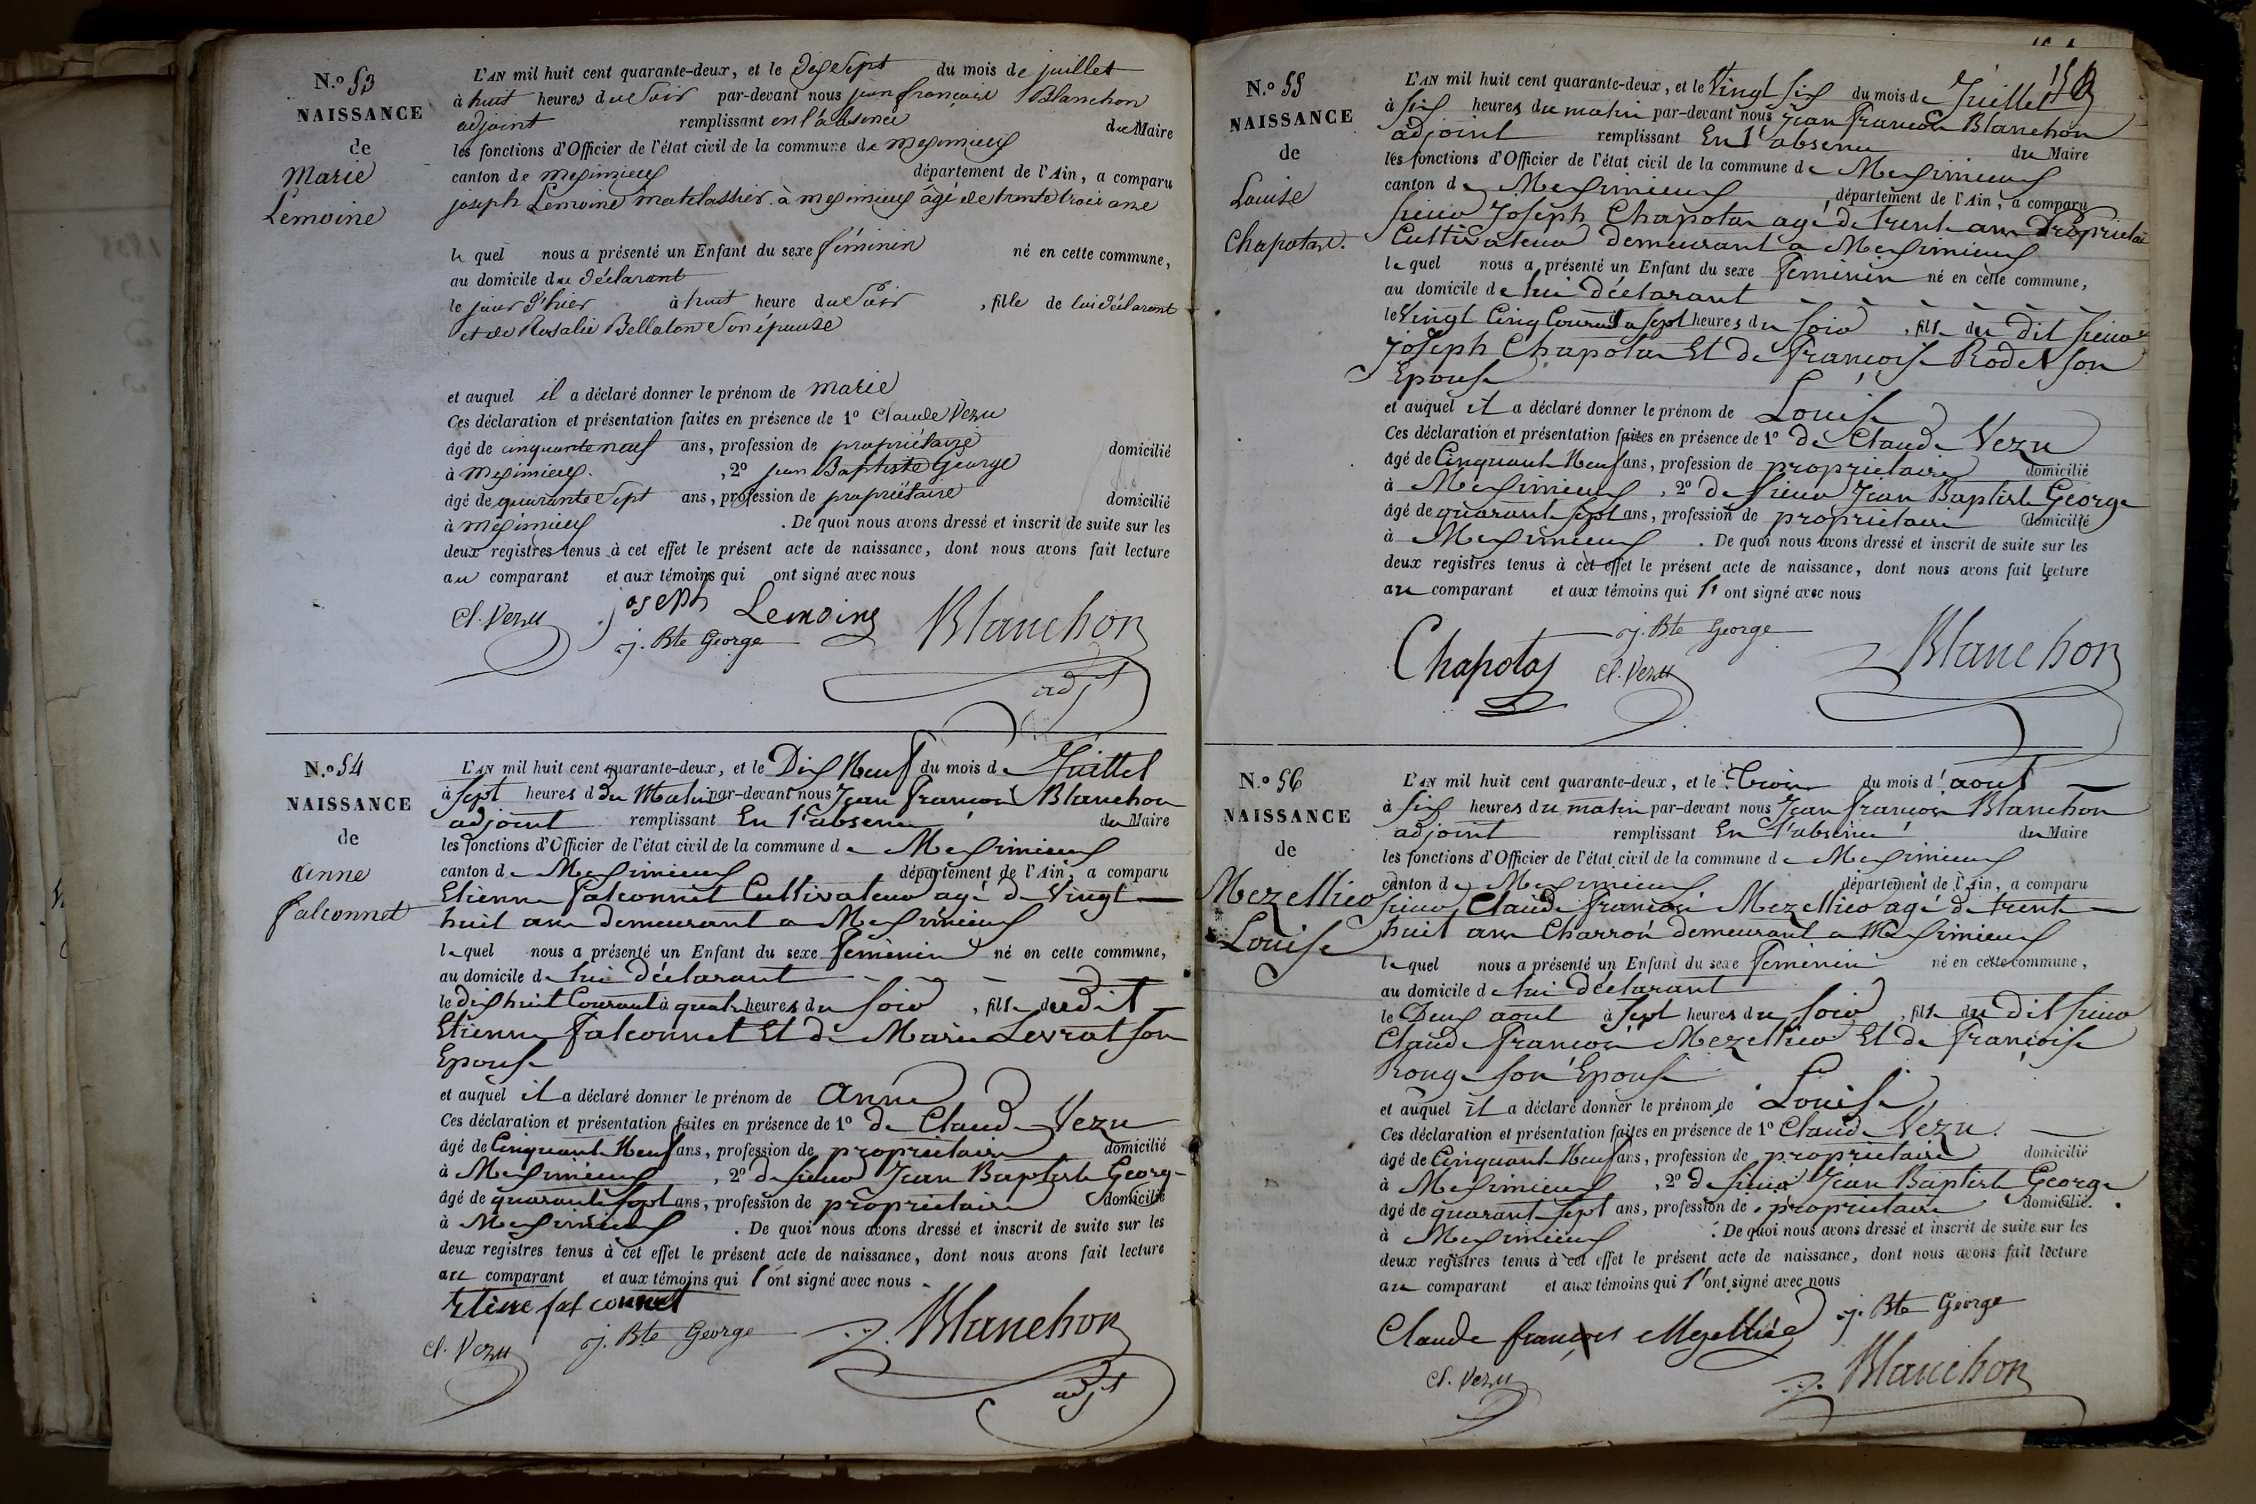 N.º 53
NAISSANCE
de
Marie
Lemoine
L'AN mil huit cent quarante-deux, et le dix sept du mois de juillet
à huit heures du Soir par-devant nous jean françois Blanchon
adjoint remplissant en l'absence du Maire
les fonctions d'Officier de l'état civil de la commune de meximieux
canton de meximieux département de l'Ain, a comparu
joseph Lemoine matelassier à meximieux âgé de trente trois ans
le quel nous a présenté un Enfant du sexe féminin né en cette commune,
au domicile du déclarant
le jour d'hier à huit heure du Soir, fille de lui déclarant
et de Rosalie Bellaton Son épouse
et auquel il a déclaré donner le prénom de marie
Ces déclaration et présentation faites en présence de 1º Claude Vezu
âgé de cinquante neuf ans, profession de propriétaire domicilié
à meximieux, 2º jean Baptiste George
âgé de quarante Sept ans, profession de propriétaire domicilié
à meximieux. De quoi nous avons dressé et inscrit de suite sur les
deux registres tenus à cet effet le présent acte de naissance, dont nous avons fait lecture
au comparant et aux témoins qui ont signé avec nous
joseph Lemoine Blanchon
Cl. Vezu j. Bte George
adjt
N.º 54
NAISSANCE
de
anne
falconnet
L'AN mil huit cent quarante-deux, et le Dix Neuf du mois de Juillet
à Sept heures d du Matin par-devant nous Jean francois Blanchon
adjoint remplissant En l'absence du Maire
les fonctions d'Officier de l'état civil de la commune de Meximieux
canton de Meximieux département de l'Ain, a comparu
Etienne falconnet Cultivateur agé de Vingt
huit ans demeurant a Meximieux
le quel nous a présenté un Enfant du sexe féminin né en cette commune,
au domicile de lui déclarant
le dix huit Courant à quatre heures du soir, fille dudit
Etienne falconnet Et de Marie Levrat son
Epouse
et auquel il a déclaré donner le prénom de anne
Ces déclaration et présentation faites en présence de 1º de Claude Vezu
âgé de Cinquante Neuf ans, profession de propriétaire domicilié
à Meximieux, 2º de sieur Jean Baptiste George
âgé de quarante sept ans, profession de propriétaire domicilié
à Meximieux. De quoi nous avons dressé et inscrit de suite sur les
deux registres tenus à cet effet le présent acte de naissance, dont nous avons fait lecture
au comparant et aux témoins qui l'ont signé avec nous
falconnet
Cl. Vezu j. Bte George Blanchon
adjt
N.º 55
NAISSANCE
de
Louise
Chapotar.
L'AN mil huit cent quarante-deux, et le Vingt six du mois de Juillet
à six heures du matin par-devant nous Jean francois Blanchon
adjoint remplissant En l'absence du Maire
les fonctions d'Officier de l'état civil de la commune de Meximieux
canton de Meximieux département de l'Ain, a comparu
sieur Joseph Chapotar agé de trente ans
Cultivateur demeurant a Meximieux
le quel nous a présenté un Enfant du sexe féminin né en cette commune,
au domicile de lui déclarant
le Vingt Cinq Courant a sept heures du soir, fille du dit sieur
Joseph Chapotar Et de françoise Rodet son
Epouse
et auquel il a déclaré donner le prénom de Louise
Ces déclaration et présentation faites en présence de 1º de Claude Vezu
âgé de Cinquante Neuf ans, profession de propriétaire domicilié
à Meximieux, 2º de sieur Jean Baptiste George
âgé de quarante sept ans, profession de propriétaire domicilié
à Meximieux. De quoi nous avons dressé et inscrit de suite sur les
deux registres tenus à cet effet le présent acte de naissance, dont nous avons fait lecture
au comparant et aux témoins qui l'ont signé avec nous
j. Bte George Blanchon
Cl. Vezu
N.º 56
NAISSANCE
de
Louise
L'AN mil huit cent quarante-deux, et le Trois du mois d'aout
à six heures du matin par-devant nous Jean francois Blanchon
adjoint remplissant En l'absence du Maire
les fonctions d'Officier de l'état civil de la commune de Meximieux
canton de Meximieux département de l'Ain, a comparu
sieur Claude francois agé de trente
huit ans Charron demeurant a Meximieux
le quel nous a présenté un Enfant du sexe féminin né en cette commune,
au domicile de lui déclarant
le Deux aout à sept heures du soir, fille du dit sieur
Claude francois Et de francoise
Rouge son Epouse
et auquel il a déclaré donner le prénom de Louise
Ces déclaration et présentation faites en présence de 1º Claude Vezu
âgé de Cinquante Neuf ans, profession de propriétaire domicilié
à Meximieux, 2º de sieur Jean Baptiste George
âgé de quarante sept ans, profession de propriétaire domicilié
à Meximieux. De quoi nous avons dressé et inscrit de suite sur les
deux registres tenus à cet effet le présent acte de naissance, dont nous avons fait lecture
au comparant et aux témoins qui l'ont signé avec nous
Claude françois j. Bte George
Cl. Vezu Blanchon